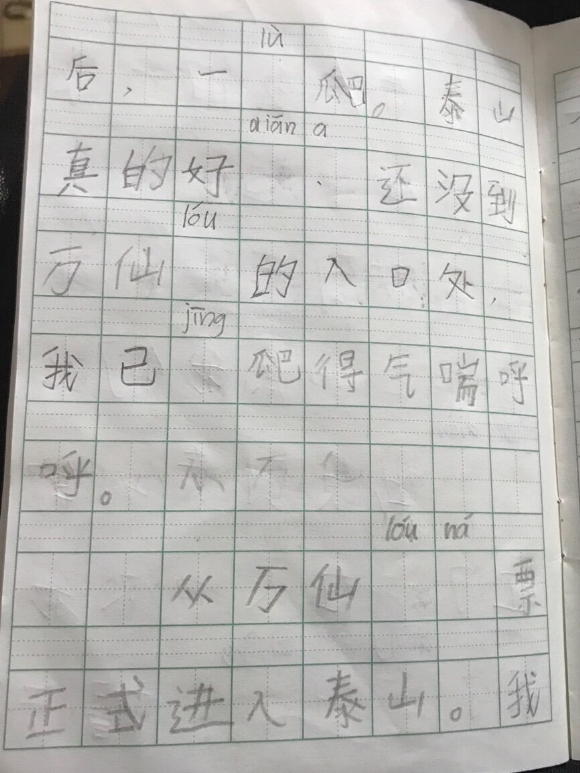 lù
后，一 爬。泰山
aiān a
真的好 还没到
lóu
万仙 的入口处，
jīng
我已 爬得气喘呼
呼。
lóu ná
从万仙 票
正式进入泰山。我